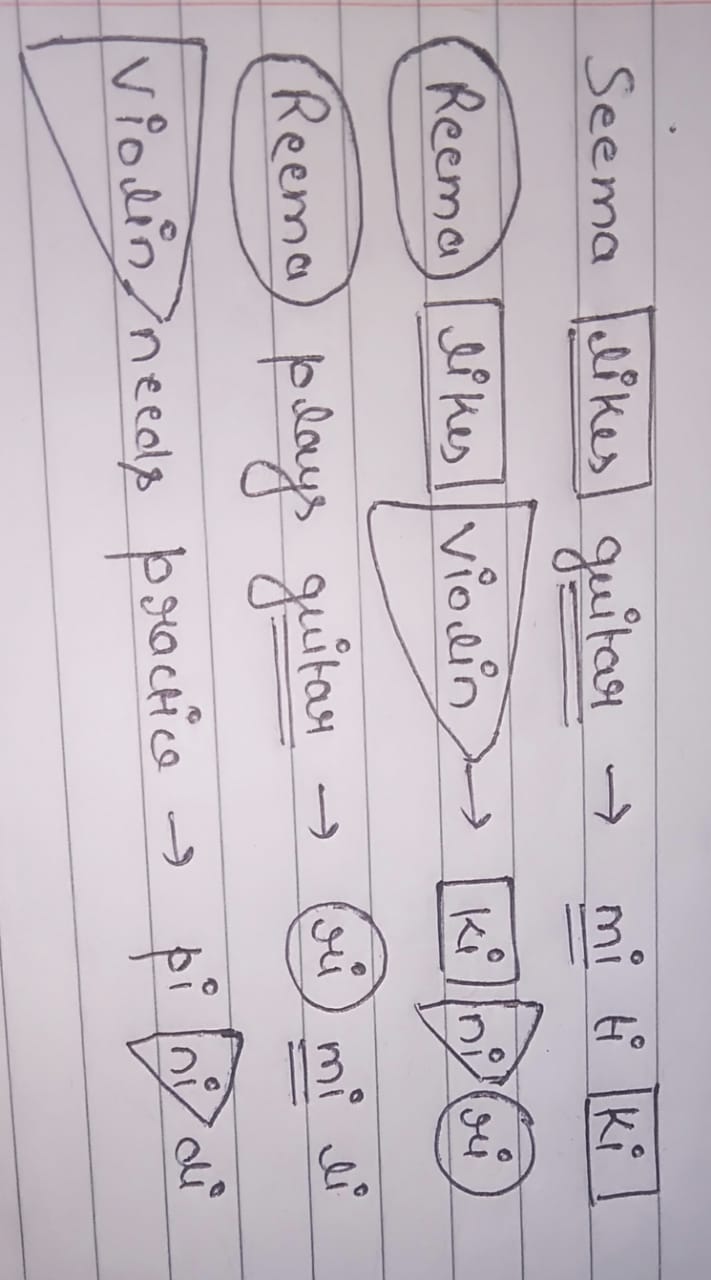 Seema likes guitar → mi ti ki
Reema likes violin → ki ni ri
Reema plays guitar → ri mi li
Violin needs practice → pi ni di